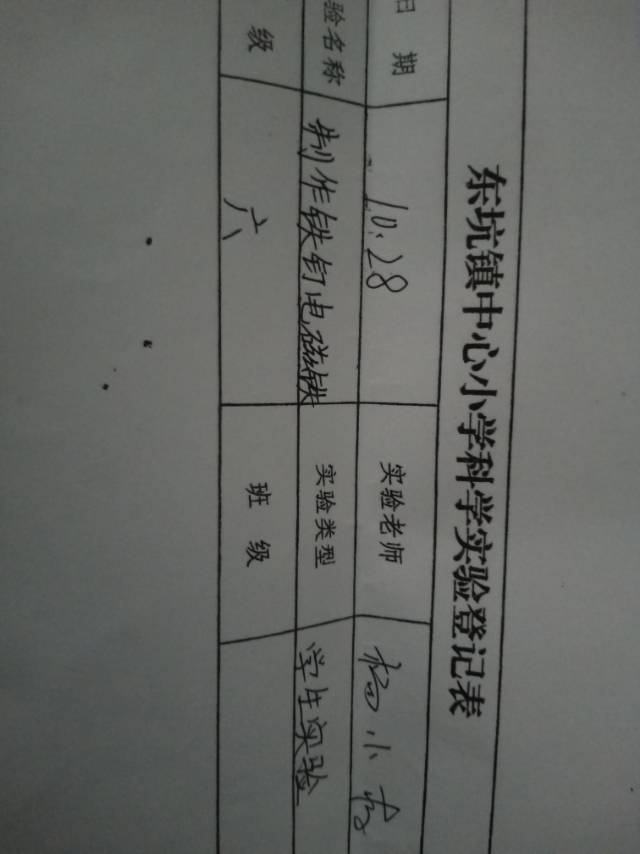 东坑镇中心小学科学实验登记表
日 期 10.28 实验老师 杨小
验名称 制作铁钉电磁铁 实验类型 学生实验
级 六 班 级